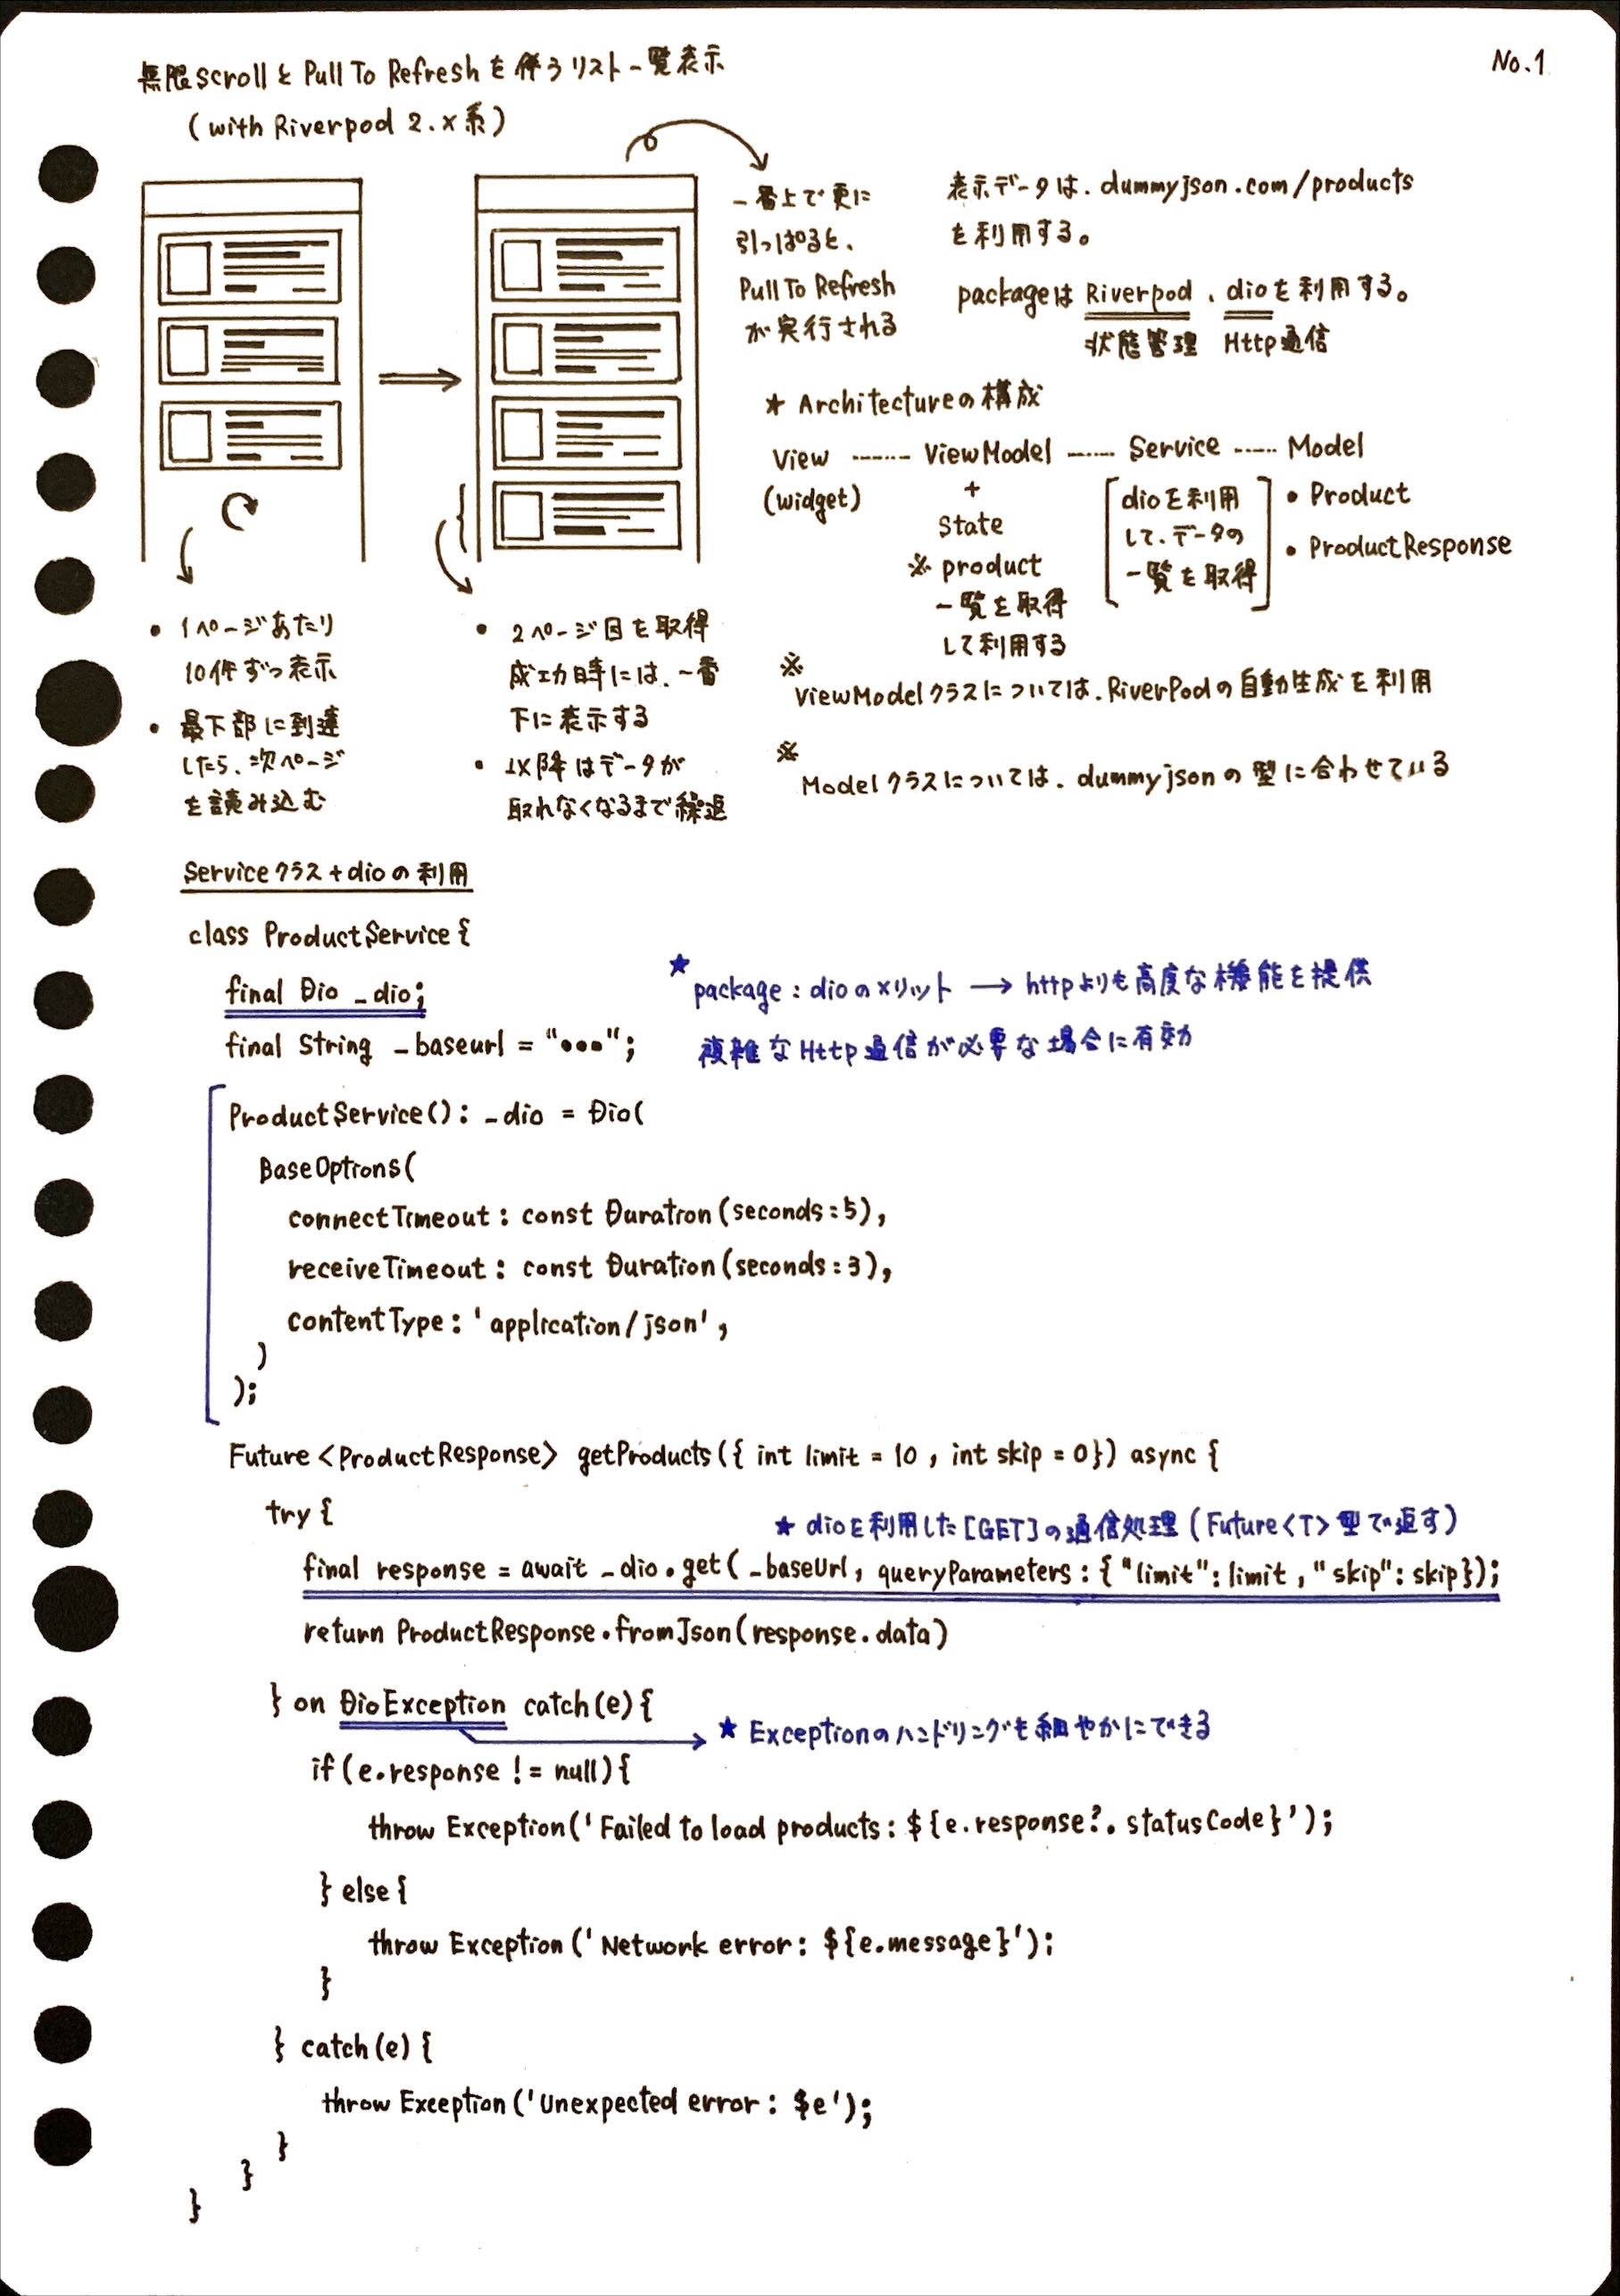 無限scrollとPull To Refreshを伴うリスト一覧表示
(with Riverpod 2.x系)
No.1
一番上で更に
引っぱると、
Pull To Refresh
が実行される
表示データは、dummyjson.com/products
を利用する。
packageは Riverpod 、dioを利用する。
状態管理 Http通信
★ Architectureの構成
View ------ ViewModel ------ Service ------ Model
(widget)
+
State
※ product
一覧を取得
して利用する
dioを利用
して、データの
一覧を取得
• Product
• ProductResponse
• 1ページあたり
10件ずつ表示
• 最下部に到達
したら、次ページ
を読み込む
• 2ページ目を取得
成功時には、一番
下に表示する
• 以降はデータが
取れなくなるまで繰返
※
ViewModelクラスについては、RiverPodの自動生成を利用
※
Modelクラスについては、dummyjsonの型に合わせている
Serviceクラス+dioの利用
class ProductService {
final Dio _dio;
final String _baseurl = "•••";
★
package : dioのメリット → httpよりも高度な機能を提供
複雑なHttp通信が必要な場合に有効
ProductService(): _dio = Dio(
BaseOptions(
connectTimeout: const Duration(seconds:5),
receiveTimeout: const Duration(seconds:3),
contentType: 'application/json',
)
);
Future<ProductResponse> getProducts({ int limit = 10 , int skip = 0}) async {
try {
★ dioを利用した[GET]の通信処理(Future<T>型で返す)
final response = await _dio.get( _baseUrl, queryParameters: { "limit": limit , "skip": skip});
return ProductResponse.fromJson(response.data)
} on DioException catch(e){
★ Exceptionのハンドリングも細やかにできる
if(e.response != null){
throw Exception('Failed to load products: ${e.response?.statusCode}');
} else {
throw Exception('Network error: ${e.message}');
}
} catch(e) {
throw Exception('Unexpected error: $e');
}
}
}